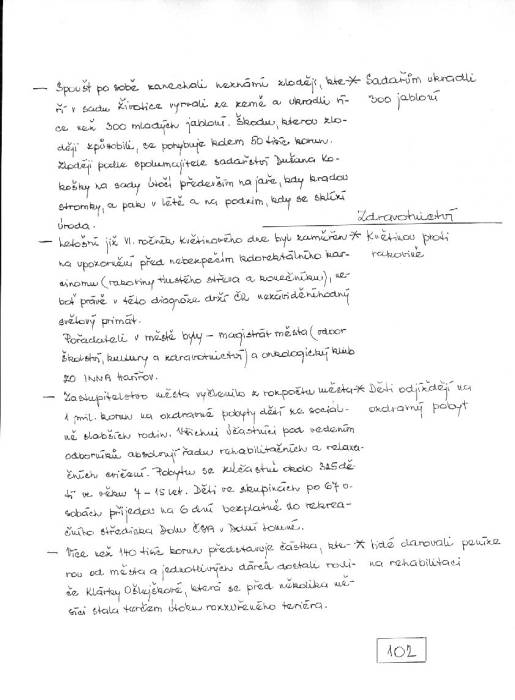 — Spoušť po sobě zanechali neznámí zloději, kte-
ří v sadu Životice vyrvali ze země a ukradli ví-
ce než 300 mladých jabloní. Škodu, kterou zlo-
ději způsobili, se pohybuje kolem 50 tisíc korun.
Zloději podle spolumajitele sadařství Dušana Ko-
košky na sady útočí především na jaře, kdy kradou
stromky, a pak v létě a na podzim, kdy se sklízí
úroda.
* Sadařům ukradli
300 jabloní
Zdravotnictví
— Letošní již VI. ročník Květinového dne byl zaměřen
na upozornění před nebezpečím kolorektálního kar-
cinomu (rakoviny tlustého střeva a konečníku), ne-
boť právě v této diagnóze drží ČR nezáviděníhodný
světový primát.
Pořadateli v městě byly – magistrát města (odbor
školství, kultury a zdravotnictví) a onkologický klub
ZO INNA Havířov.
* Květinou proti
rakovině
— Zastupitelstvo města vyčlenilo z rozpočtu města
1 mil. korun na ozdravné pobyty dětí ze sociál-
ně slabších rodin. Všichni účastníci pod vedením
odborníků absolvují řadu rehabilitačních a relaxa-
čních cvičení. Pobytu se zúčastní okolo 325 dě-
tí ve věku 7 – 15 let. Děti ve skupinách po 67 o-
sobách přijedou na 6 dní bezplatně do rekrea-
čního střediska Dolu ČSA v Dolní Lomné.
* Děti odjíždějí na
ozdravný pobyt
— Více než 140 tisíc korun představuje částka, kte-
rou od města a jednotlivých dárců dostali rodi-
če Klárky Ošlejškové, která se před několika mě-
síci stala terčem útoku rozzuřeného teriéra.
* Lidé darovali peníze
na rehabilitaci
102